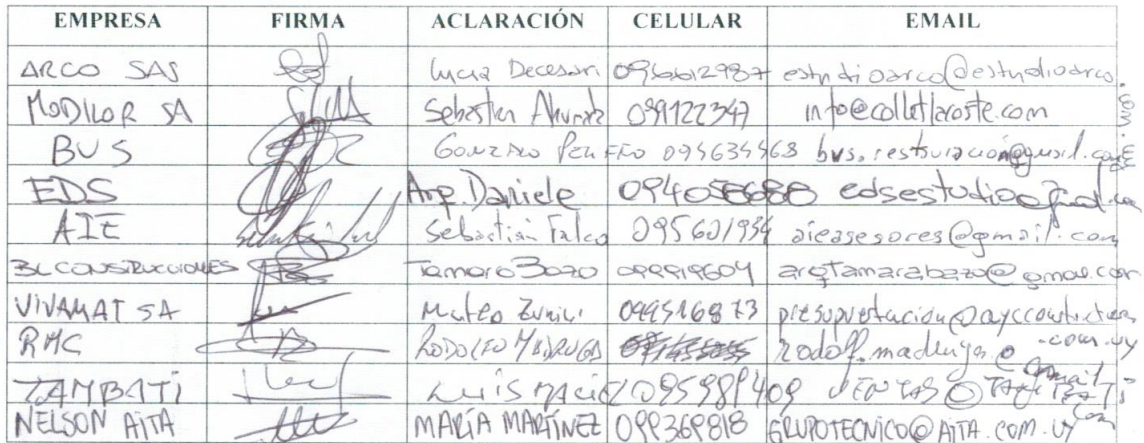 EMPRESA FIRMA ACLARACIÓN CELULAR EMAIL
ARCO SAS Lucia Decesari 0956612987 estudioarco@estudioarco.com.uy
MODILOR SA Sebastian 099122347 info@colletlacoste.com
BUS GONZALO 094634468 bus.restauracion@gmail.com
EDS Arq. Daniele 094056688 edsestudio@gmail.com
AIE Sebastian Falco 095601934 aieasesores@gmail.com
BL CONSTRUCCIONES Tamara Bazo 099919604 arqtamarabazo@gmail.com
VIVAMAT SA Mateo Zunini 099516873 presupuestacion@aycconstructora.com.uy
RMC RODOLFO MADRUGA rodolf.madruga@gmail
TAMBATI LUIS MACIEL 095989409 VENTAS@TAMBATI.com
NELSON AITA MARÍA MARTÍNEZ 099369818 GRUPOTECNICO@AITA.COM.UY